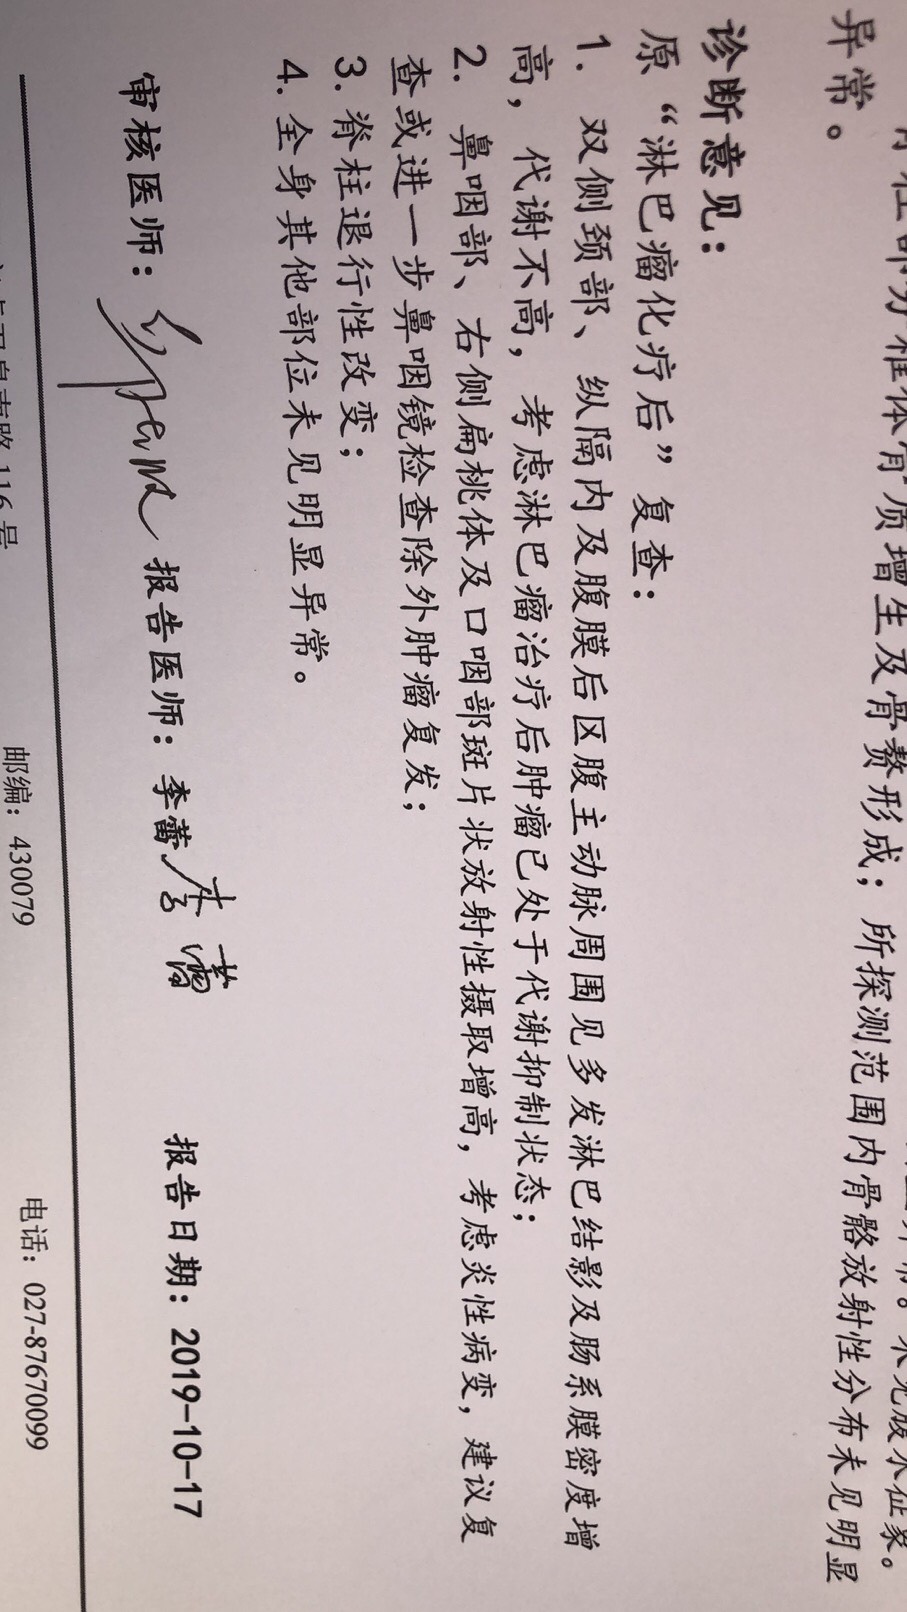 骨质增生及骨赘形成；所探测范围内骨骼放射性分布未见明显
异常。
诊断意见：
原“淋巴瘤化疗后”复查：
1. 双侧颈部、纵隔内及腹膜后区腹主动脉周围见多发淋巴结影及肠系膜密度增
高，代谢不高，考虑淋巴瘤治疗后肿瘤已处于代谢抑制状态；
2. 鼻咽部、右侧扁桃体及口咽部斑片状放射性摄取增高，考虑炎性病变，建议复
查或进一步鼻咽镜检查除外肿瘤复发；
3. 脊柱退行性改变；
4. 全身其他部位未见明显异常。
审核医师： 报告医师：李蕾 李蕾 报告日期：2019-10-17
116号 邮编：430079 电话：027-87670099